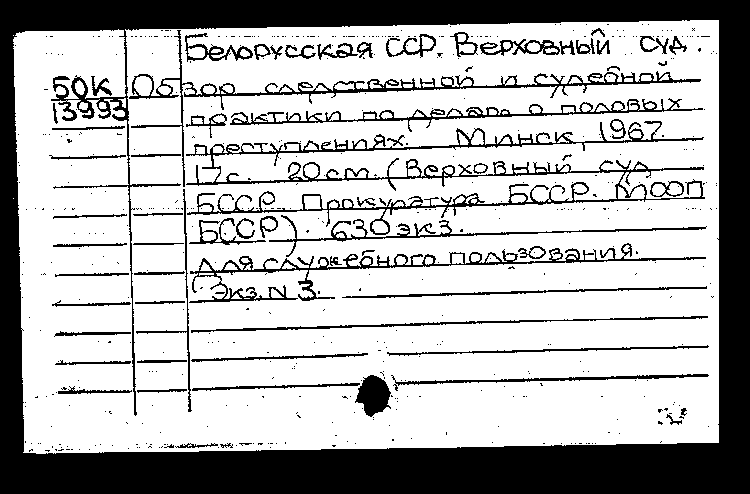 Белорусская ССР. Верховный суд.
БОК Обзор следственной и судебной
13993 практики по делам о половых
преступлениях. Минск, 1967.
17 с. 20 см. (Верховный суд
БССР. Прокуратура БССР. МООП
БССР). 630 экз.
Для служебного пользования.
Экз. N 3.